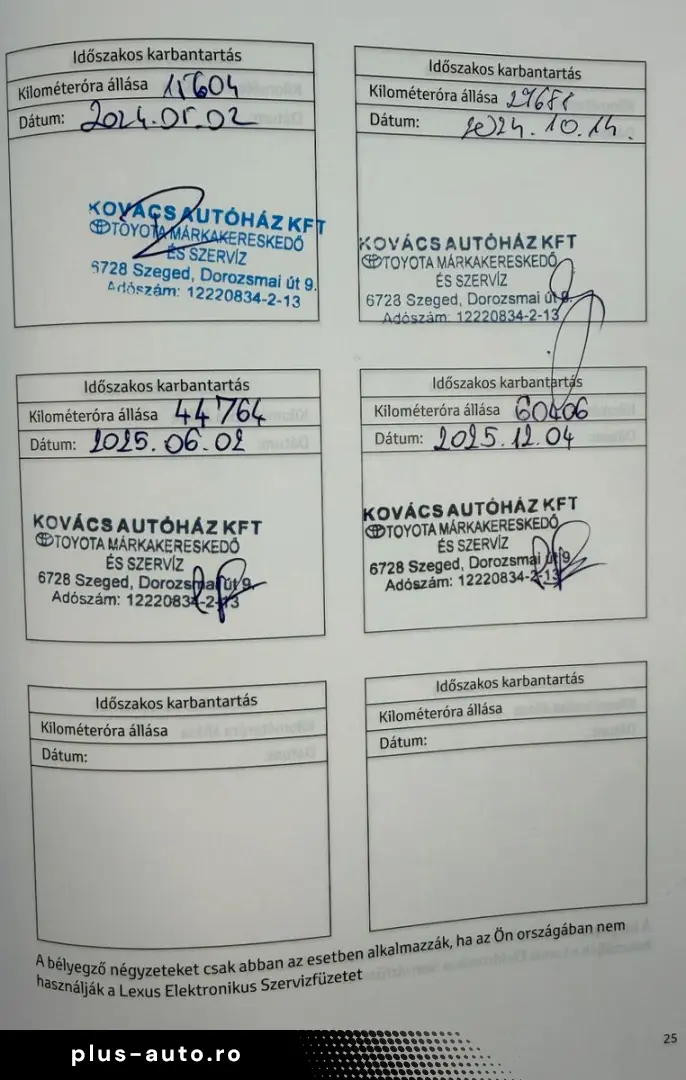 Időszakos karbantartás
Kilométeróra állása 15604
Dátum: 2024.05.02
KOVÁCS AUTÓHÁZ KFT
TOYOTA MÁRKAKERESKEDŐ
ÉS SZERVÍZ
6728 Szeged, Dorozsmai út 9.
Adószám: 12220834-2-13
Időszakos karbantartás
Kilométeróra állása 29688
Dátum: 2024.10.14.
KOVÁCS AUTÓHÁZ KFT
TOYOTA MÁRKAKERESKEDŐ
ÉS SZERVÍZ
6728 Szeged, Dorozsmai út 9.
Adószám: 12220834-2-13
Időszakos karbantartás
Kilométeróra állása 44764
Dátum: 2025.06.02
KOVÁCS AUTÓHÁZ KFT
TOYOTA MÁRKAKERESKEDŐ
ÉS SZERVÍZ
6728 Szeged, Dorozsmai út 9.
Adószám: 12220834-2-13
Időszakos karbantartás
Kilométeróra állása 60406
Dátum: 2025.12.04
KOVÁCS AUTÓHÁZ KFT
TOYOTA MÁRKAKERESKEDŐ
ÉS SZERVÍZ
6728 Szeged, Dorozsmai út 9.
Adószám: 12220834-2-13
Időszakos karbantartás
Kilométeróra állása
Dátum:
Időszakos karbantartás
Kilométeróra állása
Dátum:
A bélyegző négyzeteket csak abban az esetben alkalmazzák, ha az Ön országában nem
használják a Lexus Elektronikus Szervizfüzetet
25
plus-auto.ro